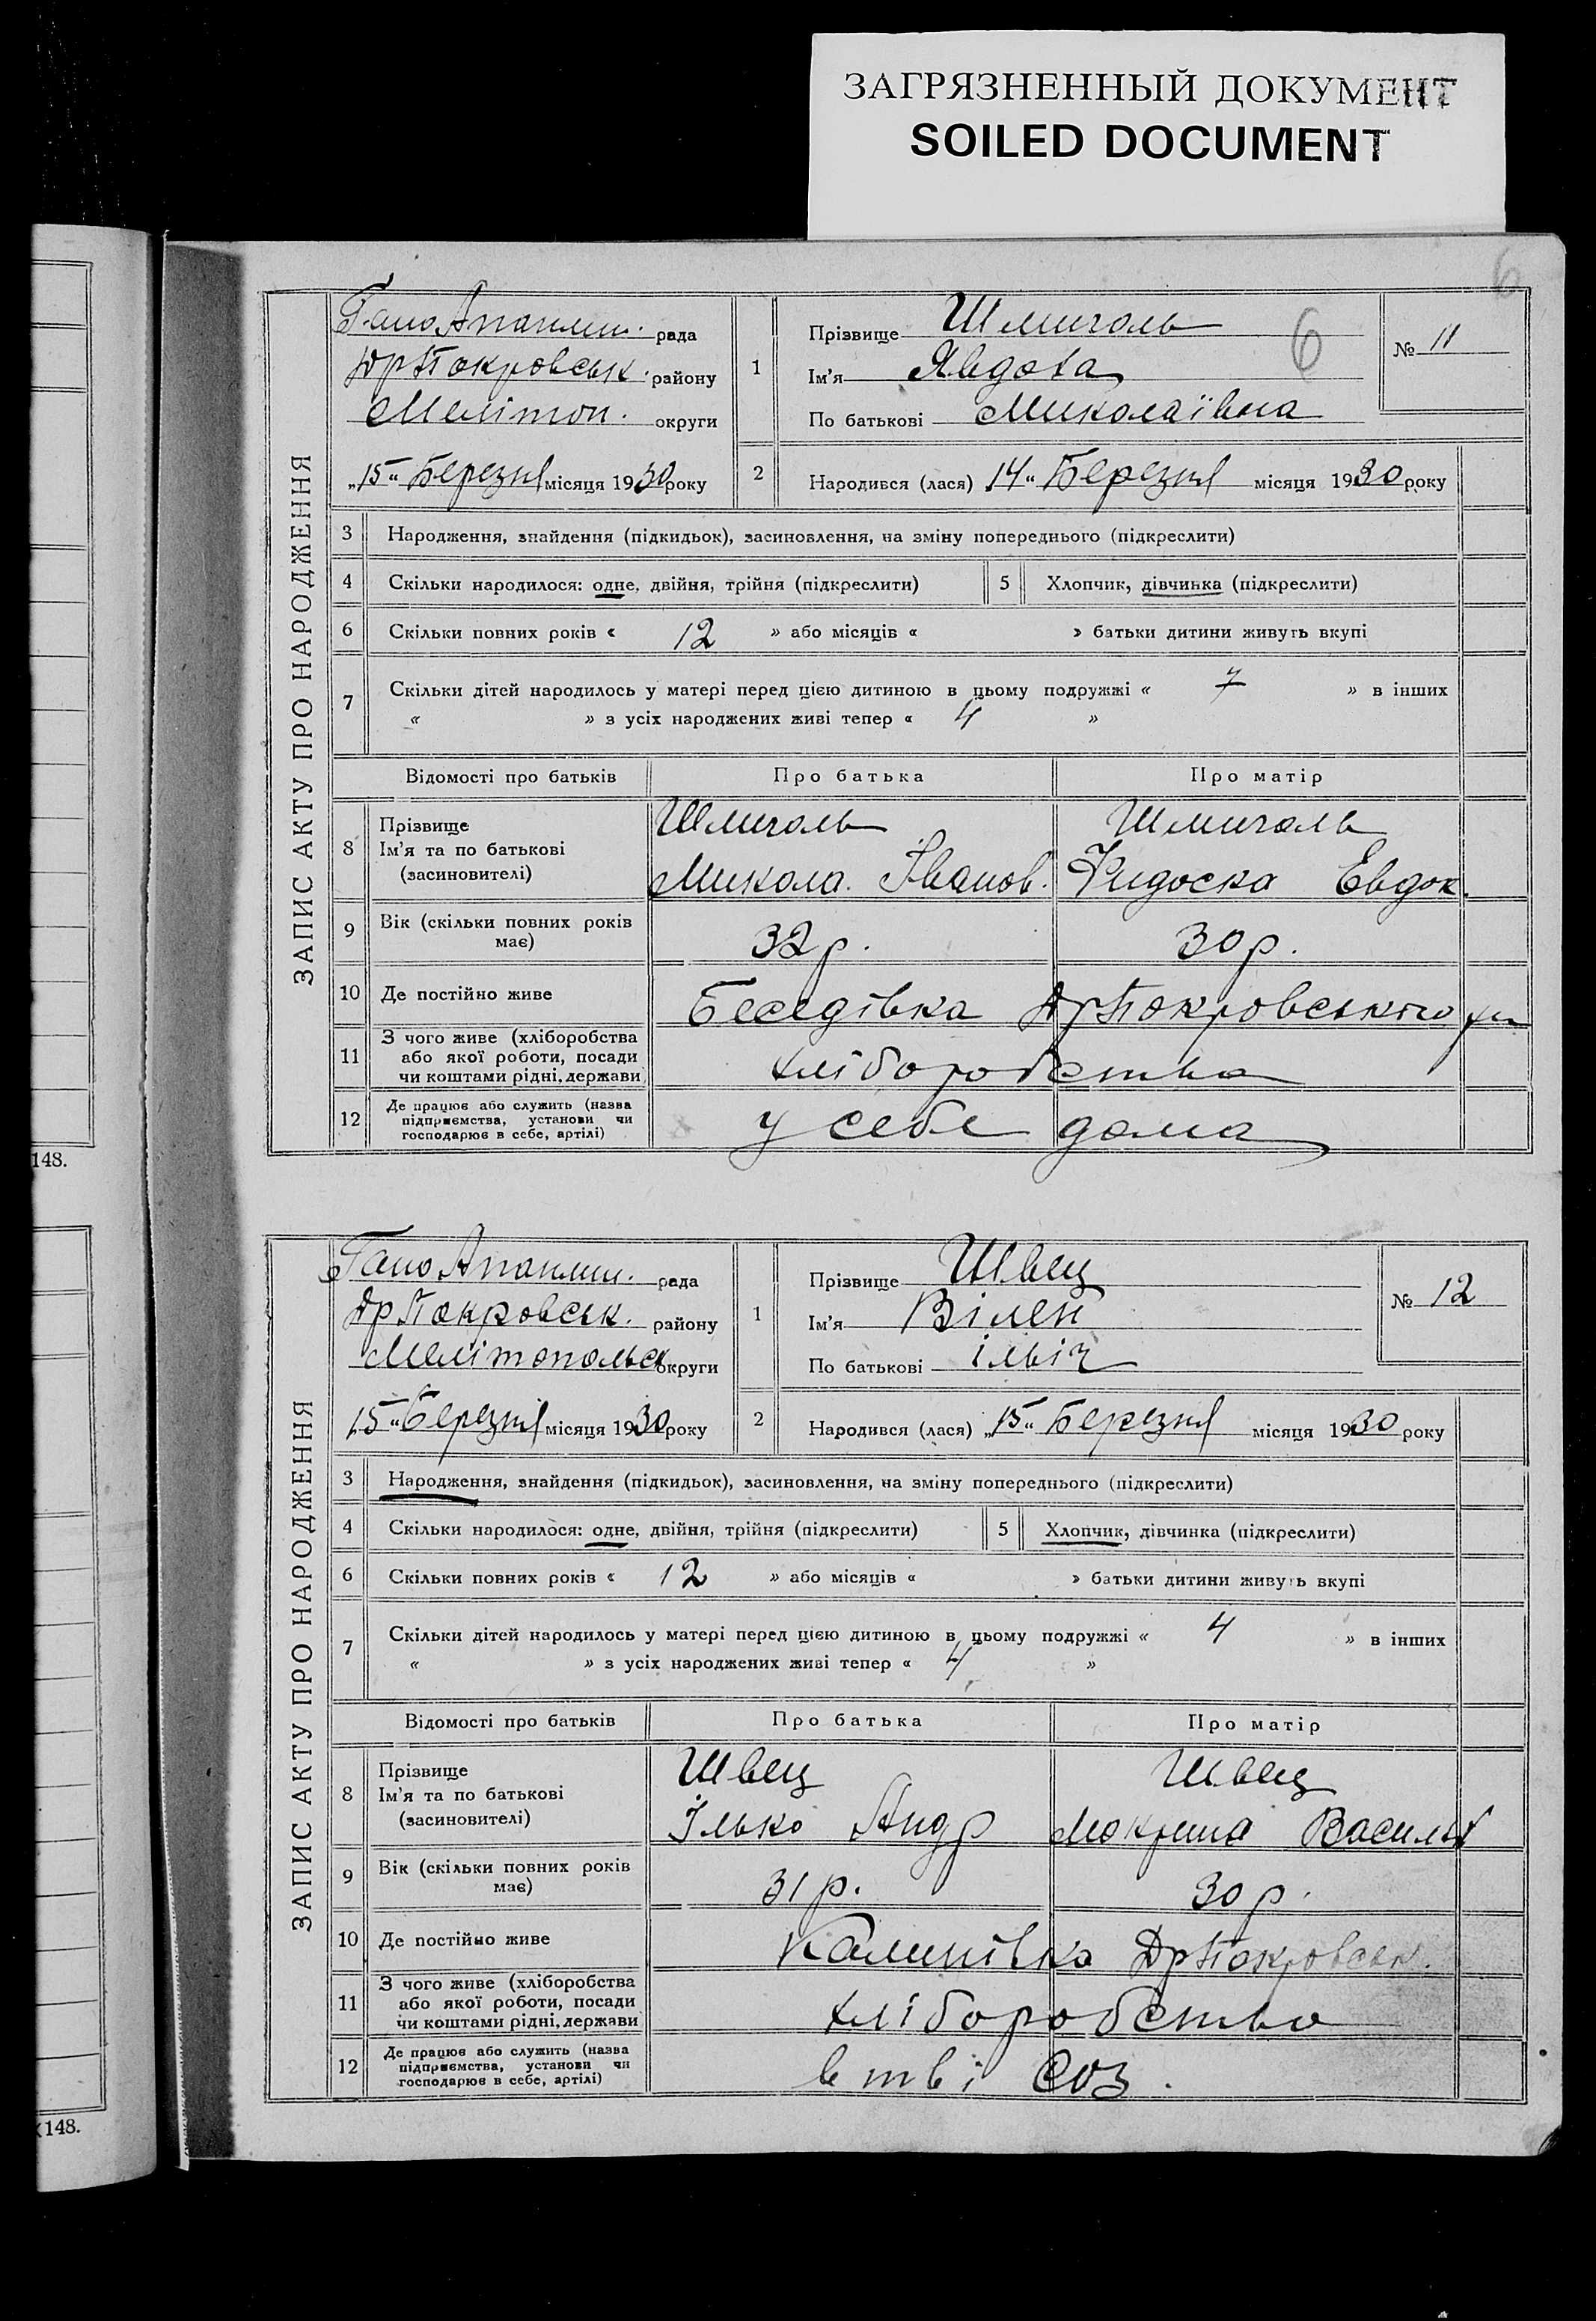 ЗАГРЯЗНЕННЫЙ ДОКУМЕНТ
SOILED DOCUMENT
6
148.
ЗАПИС АКТУ ПРО НАРОДЖЕННЯ
рада
ДрПокровськ. району
Меліт​оп. округи
„15“ Березня місяця 1930 року
1
Прізвище Шмиголь
Ім’я Явдоха
По батькові Миколаївна
6
№ 11
2 Народився (лася) 14“ Березня місяця 1930 року
3 Народження, знайдення (підкидьок), засиновлення, на зміну попереднього (підкреслити)
4 Скільки народилося: одне, двійня, трійня (підкреслити) 5 Хлопчик, дівчинка (підкреслити)
6 Скільки повних років « 12 » або місяців « » батьки дитини живуть вкупі
7 Скільки дітей народилось у матері перед цією дитиною в цьому подружжі « 7 » в інших
« » з усіх народжених живі тепер « 4 »
Відомості про батьків Про батька Про матір
8 Прізвище
Ім’я та по батькові
(засиновителі)
Шмиголь Шмиголь
Микола. Іванов. Евдок.
9 Вік (скільки повних років має) 32 р. 30 р.
10 Де постійно живе Беседівка ДрПокровського
11 З чого живе (хліборобства або якої роботи, посади чи коштами рідні, держави) хліборобства
12 Де працює або служить (назва підприємства, установи чи господарює в себе, артілі) у себе дома
148.
ЗАПИС АКТУ ПРО НАРОДЖЕННЯ
рада
ДрПокровськ. району
Мелітопольск округи
15“ Березня місяця 1930 року
1
Прізвище Швец
Ім’я Вілен
По батькові ільіч
№ 12
2 Народився (лася) „15“ Березня місяця 1930 року
3 Народження, знайдення (підкидьок), засиновлення, на зміну попереднього (підкреслити)
4 Скільки народилося: одне, двійня, трійня (підкреслити) 5 Хлопчик, дівчинка (підкреслити)
6 Скільки повних років « 12 » або місяців « » батьки дитини живуть вкупі
7 Скільки дітей народилось у матері перед цією дитиною в цьому подружжі « 4 » в інших
« » з усіх народжених живі тепер « 4 »
Відомості про батьків Про батька Про матір
8 Прізвище
Ім’я та по батькові
(засиновителі)
Швец Швец
Ілько Андр Мокрина Василів
9 Вік (скільки повних років має) 31 р. 30 р.
10 Де постійно живе Калинівка ДрПокровськ.
11 З чого живе (хліборобства або якої роботи, посади чи коштами рідні, держави) хліборобство
12 Де працює або служить (назва підприємства, установи чи господарює в себе, артілі) в тві Соз.